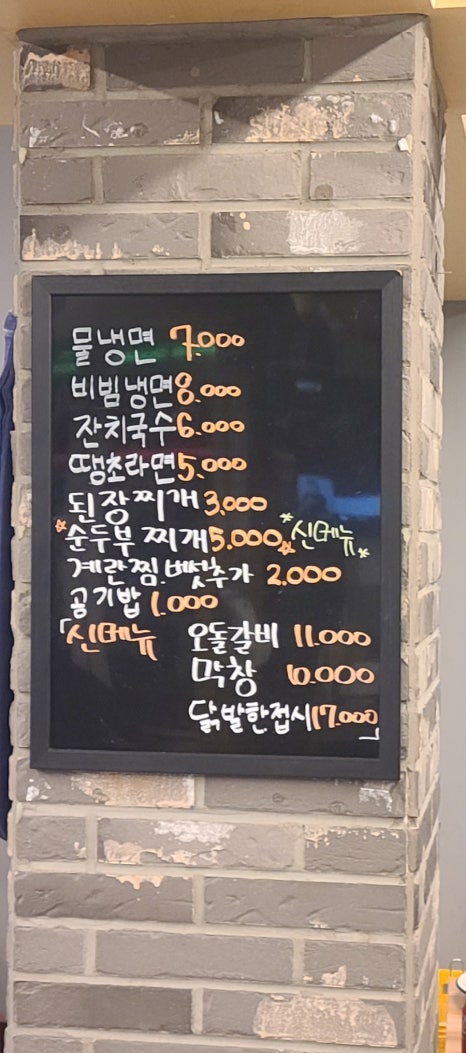 물냉면 7.000
비빔냉면 8.000
잔치국수 6.000
땡초라면 5.000
된장찌개 3.000
☆순두부 찌개 5.000☆ *신메뉴*
계란찜.버섯추가 2.000
공기밥 1.000
「신메뉴 오돌갈비 11.000
막창 10.000
닭발한접시 17.000」